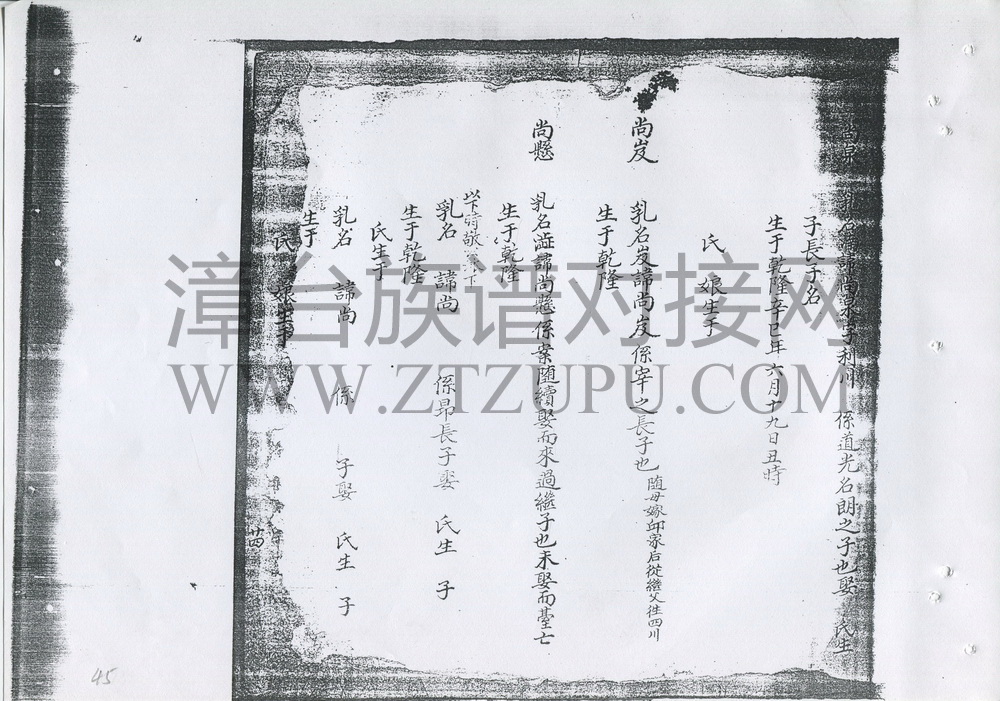 乳名 諱尚 字利用 係道光名朗之子也娶 氏生
子長子名
生于乾隆辛巳年六月十九日丑時
氏 娘生于
尚岌 乳名岌諱尚岌係宰之長子也随母嫁邱家后從繼父徃四川
生于乾隆
尚懸 乳名 諱尚懸係案随續娶而來過繼子也未娶而臺亡
生于乾隆
乳名 諱尚 係昴長子娶 氏生 子
生于乾隆
氏生于
乳名 諱尚 係 子娶 氏生 子
生于
氏 娘生于
廿四
45
漳台族谱对接网
WWW.ZTZUPU.COM